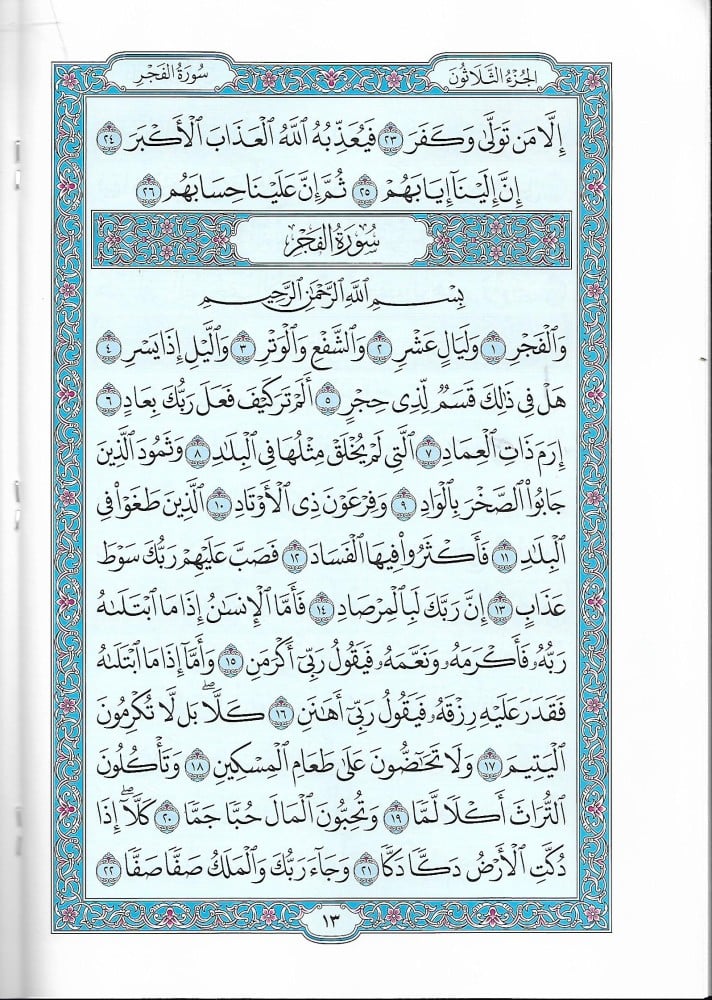 الجُزْءُ الثَّلَاثُونَ
سُورَةُ الفَجْرِ
إِلَّا مَن تَوَلَّىٰ وَكَفَرَ ٢٣ فَيُعَذِّبُهُ ٱللَّهُ ٱلْعَذَابَ ٱلْأَكْبَرَ ٢٤
إِنَّ إِلَيْنَآ إِيَابَهُمْ ٢٥ ثُمَّ إِنَّ عَلَيْنَا حِسَابَهُم ٢٦
سُورَةُ الفَجْرِ
بِسْمِ ٱللَّهِ ٱلرَّحْمَٰنِ ٱلرَّحِيمِ
وَٱلْفَجْرِ ١ وَلَيَالٍ عَشْرٍ ٢ وَٱلشَّفْعِ وَٱلْوَتْرِ ٣ وَٱلَّيْلِ إِذَا يَسْرِ ٤
هَلْ فِي ذَٰلِكَ قَسَمٌ لِّذِي حِجْرٍ ٥ أَلَمْ تَرَ كَيْفَ فَعَلَ رَبُّكَ بِعَادٍ ٦
إِرَمَ ذَاتِ ٱلْعِمَادِ ٧ ٱلَّتِي لَمْ يُخْلَقْ مِثْلُهَا فِي ٱلْبِلَٰدِ ٨ وَثَمُودَ ٱلَّذِينَ
جَابُوا۟ ٱلصَّخْرَ بِٱلْوَادِ ٩ وَفِرْعَوْنَ ذِي ٱلْأَوْتَادِ ١٠ ٱلَّذِينَ طَغَوْا۟ فِي
ٱلْبِلَٰدِ ١١ فَأَكْثَرُوا۟ فِيهَا ٱلْفَسَادَ ١٢ فَصَبَّ عَلَيْهِمْ رَبُّكَ سَوْطَ
عَذَابٍ ١٣ إِنَّ رَبَّكَ لَبِٱلْمِرْصَادِ ١٤ فَأَمَّا ٱلْإِنسَٰنُ إِذَا مَا ٱبْتَلَىٰهُ
رَبُّهُۥ فَأَكْرَمَهُۥ وَنَعَّمَهُۥ فَيَقُولُ رَبِّيٓ أَكْرَمَنِ ١٥ وَأَمَّآ إِذَا مَا ٱبْتَلَىٰهُ
فَقَدَرَ عَلَيْهِ رِزْقَهُۥ فَيَقُولُ رَبِّيٓ أَهَٰنَنِ ١٦ كَلَّا ۖ بَل لَّا تُكْرِمُونَ
ٱلْيَتِيمَ ١٧ وَلَا تَحَٰٓضُّونَ عَلَىٰ طَعَامِ ٱلْمِسْكِينِ ١٨ وَتَأْكُلُونَ
ٱلتُّرَاثَ أَكْلًا لَّمًّا ١٩ وَتُحِبُّونَ ٱلْمَالَ حُبًّا جَمًّا ٢٠ كَلَّآ ۖ إِذَا
دُكَّتِ ٱلْأَرْضُ دَكًّا دَكًّا ٢١ وَجَآءَ رَبُّكَ وَٱلْمَلَكُ صَفًّا صَفًّا ٢٢
١٣